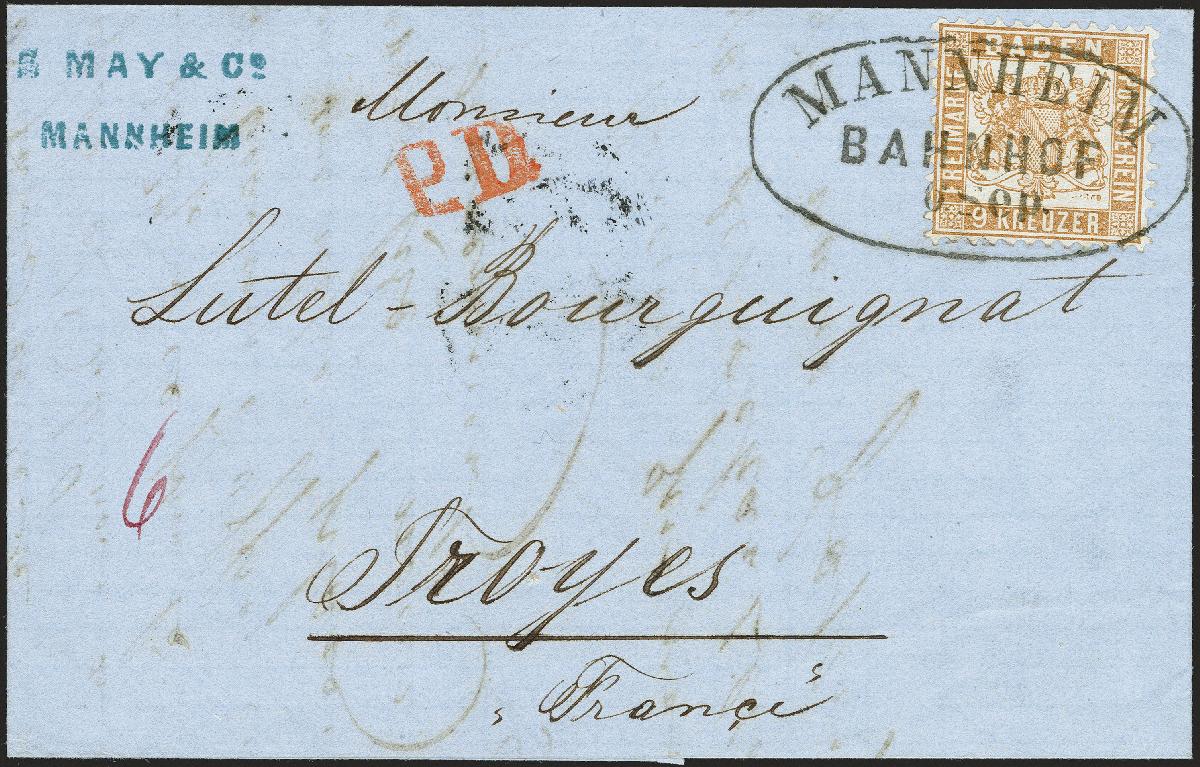 MAY & Co
MANNHEIM
Monsieur
P.D.
MANNHEIM
BAHNHOF
BADEN
FREIMARKE
POSTVEREIN
9 KREUZER
Lutel-Bourguignat
6
Troyes
"Françe"